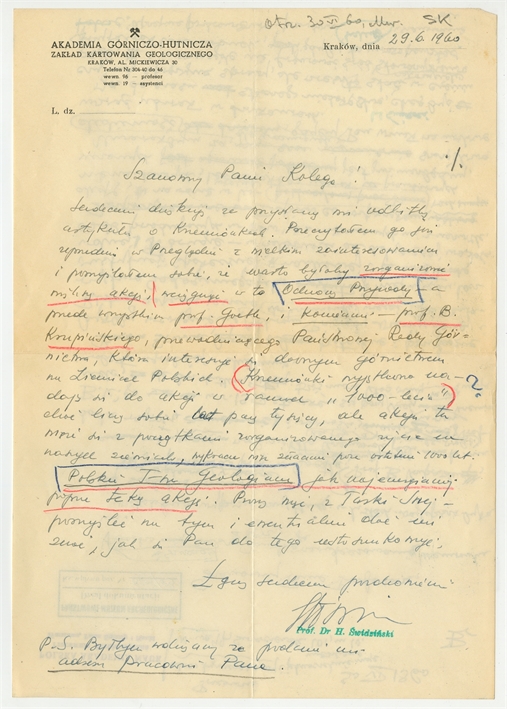 otrz. 30 VI 60. SK
AKADEMIA GÓRNICZO-HUTNICZA
ZAKŁAD KARTOWANIA GEOLOGICZNEGO
KRAKÓW, AL. MICKIEWICZA 30
Telefon Nr 304-40 do 46
wewn. 96 — profesor
wewn. 19 — asystenci
Kraków, dnia 29.6.1960
L. dz.
./.
Szanowny Panie Kolego!
Serdecznie dziękuję za przysłaną mi odbitkę
artykułu o Krzemionkach. Przeczytałem go już
uprzednio w Przeglądzie z wielkim zainteresowaniem
i pomyślałem sobie, że warto byłoby zorganizować
akcję, wciągnąć w to Ochronę Przyrody – a
przede wszystkim prof. Goetla, i koniecznie – prof. B.
Krupińskiego, przewodniczącego Państwowej Rady Gór-
nictwa, który interesuje się dawnym górnictwem
na Ziemiach Polskich. (Krzemionki na-
dają się do akcji w ramach "1000-lecia") ?
choć liczą sobie parę tysięcy, ale akcja ta
się z początkami zorganizowanego życia na
naszych ziemiach, ostatnie 1000 lat.
Polskie T-wo Geologiczne jak najenergiczniej
taką akcję. Proszę więc, z Łaski Swej
pomyśleć na tym i ewentualnie dać mi
znać, jak się Pan do tego ustosunkowuje.
Łączę serdeczne pozdrowienia
Prof. Dr H. Świdziński
P.S. Byłbym wdzięczny za podanie mi
adresu Pracowni Pana.